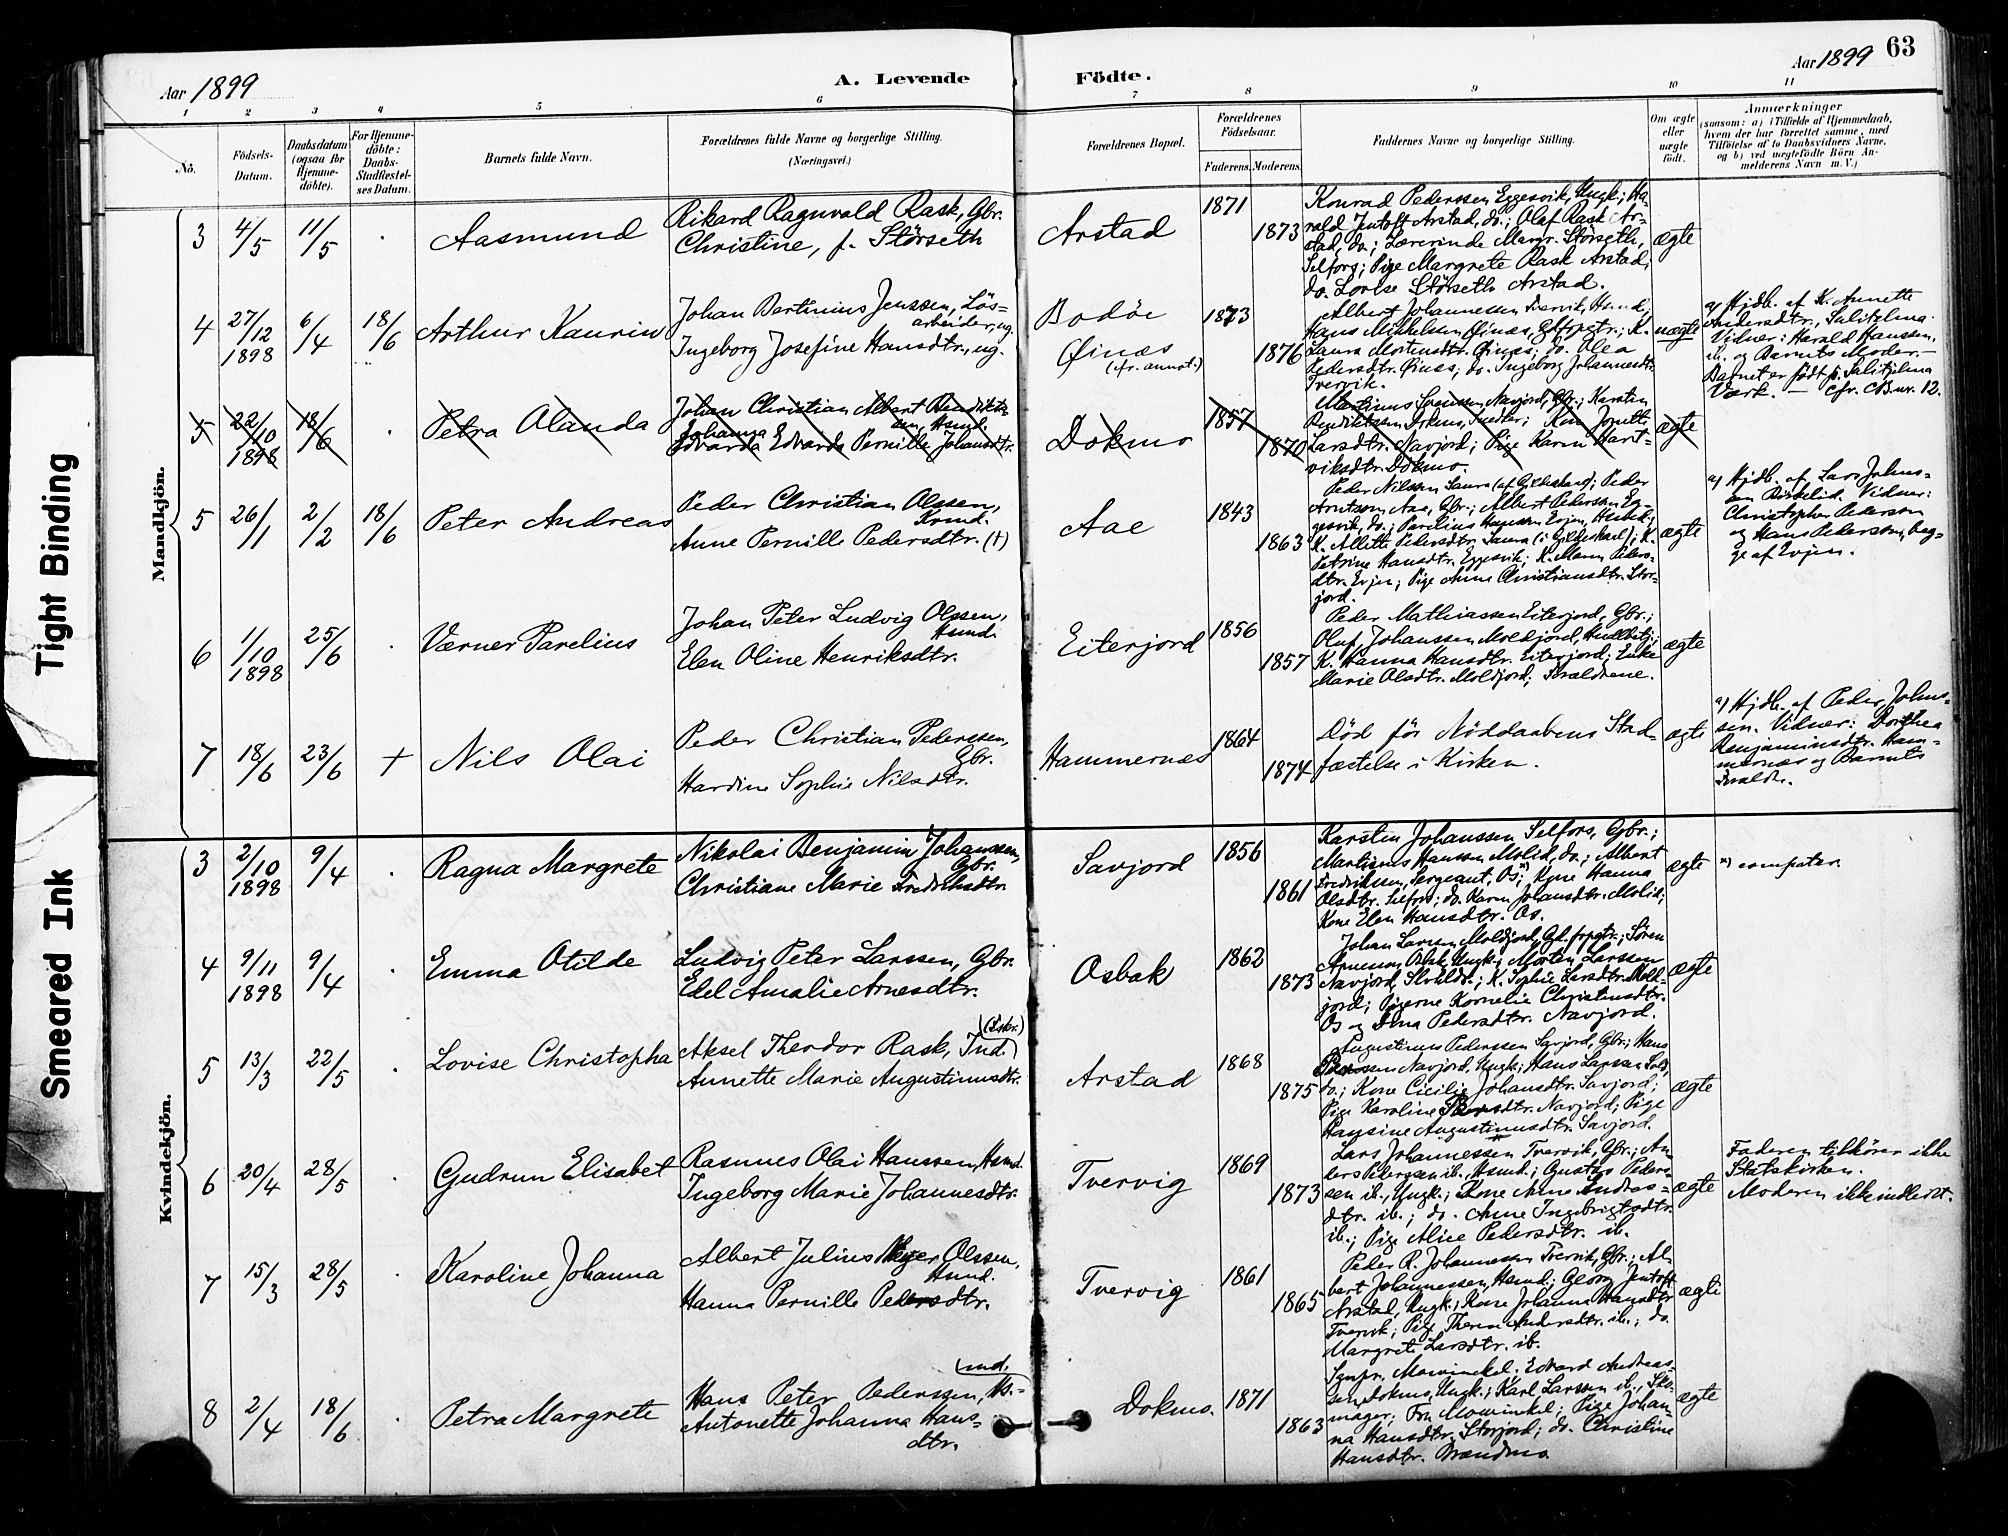 Tight Binding
Smeared Ink
Aar 1899
A. Levende
Födte.
Aar 1899
63
1 2 3 4 5 6 7 8 9 10 11
No.
Födsels-
Datum.
Daabsdatum
(ogsaa for
Hjemme-
döbte).
For Hjemme-
döbte:
Daabs-
Stadfæstel-
ses Datum.
Barnets fulde Navn.
Forældrenes fulde Navne og borgerlige Stilling.
(Næringsvei.)
Forældrenes Bopæl.
Forældrenes
Födselsaar.
Faderens.
Moderens.
Faddernes Navne og borgerlige Stilling.
Om ægte
eller
uægte
födt.
Anmærkninger
(saasom: a) i Tilfælde af Hjemmedaab,
hvem der har forrettet samme, med
Tilföielse af to Daabsvidners Navne,
og b) ved uægtefödte Börn An-
melderens Navn m. V.)
Mandkjön.
3 4/5 11/5 . Aasmund
Rikard Ragnvald Rask, Gbr.
Christine, f. Störseth
Arstad
1871
1873
Konrad Pederssen Eggesvik, Ungk.; Ha-
rald Jentoft Arstad, do.; Olaf Rask Ar-
stad, do.; Lærerinde Margr. Störseth,
Selfors; Pige Margrete Rask Arstad;
do. Lovise Störseth Arstad.
ægte
4 27/12 1898 6/4 18/6 Arthur Kaurin
Johan Bertinius Jenssen, Lös-
arbeider, ug.
Ingeborg Josefine Hansdtr., ug.
Bodöe
Öinæs
(fr. annot.)
1873
1876
Albert Johannessen Tvervik, Hsmd.;
Hans Mikkelsen Öinæs, Gdfrpgtr.; K.
Laura Mortensdtr. Öinæs; do. Olea
Pedersdtr. Öinæs; do. Ingeborg Johannesdtr.
Tvervik.
uægte
a) Hjdb. af K. Annette
Andersdtr., Sulitelma.
Vidner: Harald Hanssen,
ib. og Barnets Moder. —
Barnet er födt p. Sulitjelma
Værk. — Cfr. CB. nr. 12.
5 22/10 1898 18/6 . Petra Alanda
Johan Christian Albert Benedikts-
sen, Hsmd.
Johanna
Edvarda Edvarda Pernille Johansdtr.
Dokmo
1857
1870
Martinus Svenssen Navjord, Gbr.; Karsten
Benediktssen Dokmo, Indster; Kone Jonette
Larsdtr. Navjord; Pige Karen Hart-
viksdtr. Dokmo.
ægte
5 26/1 2/2 18/6 Peter Andreas
Peder Christian Olssen,
Krmd.
Anne Pernille Pedersdtr. (†)
Aae
1843
1863
Peder Nilssen Saura (af Gildeskaal); Peder
Arntssen Aae, Gbr.; Albert Pederssen Eg-
gesvik, do.; Parelius Hanssen Evjen, Hsmd.;
K. Allette Pedersdtr. Saura (i Gildeskaal); K.
Petrine Hansdtr. Eggesvik; K. Maren Peders-
dtr. Evjen; Pige Anne Christiansdtr. Stor-
jord.
ægte
a) Hjdb. af Lars Johns-
sen Birkelid. Vidner:
Christopher Pederssen
og Hans Pederssen, beg-
ge af Evjen.
6 1/10 1898 25/6 . Værner Parelius
Johan Peter Ludvig Olssen,
Hsmd.
Elen Oline Henriksdtr.
Eiterjord
1856
1857
Peder Mathiassen Eiterjord, Gbr.;
Oluf Johanssen Moldjord,
K. Hanna Hansdtr. Eiterjord; Enke
Marie Olsdtr. Moldjord; Forældrene.
ægte
7 18/6 23/6 + Nils Olai
Peder Christian Pederssen,
Gbr.
Hardine Sophie Nilsdtr.
Hammernæs
1864
1874
Död för Nöddaabens Stad-
fæstelse i Kirken.
ægte
a) Hjdb. af Peder Johns-
sen. Vidner: Dorthea
Benjaminsdtr. Ham-
mernæs og Barnets
Forældr.
Kvindekjön.
3 2/10 1898 9/4 . Ragna Margrete
Nikolai Benjamin Johanssen,
Gbr.
Christiane Marie Fredriksdtr.
Savjord
1856
1861
Karsten Johanssen Selfors, Gbr.;
Martinus Hanssen Molid, do.; Albert
Fredrikssen, Sergeant, Os; x) Kone Hanna
Olsdtr. Selfors; do. Karen Johansdtr. Molid;
Kone Elen Hansdtr. Os.
ægte
x) compater.
4 9/11 1898 9/4 . Emma Otilde
Ludvig Peter Larssen, Gbr.
Edel Amalie Arnesdtr.
Osbak
1862
1873
Johan Larssen Moldjord, Gd.frpgtr.; Sören
Arnessen Osbak, Ungk.; Morten Larssen
Navjord, K. Sophie Larsdtr. Mold-
jord; Pigerne Kornelie Christensdtr.
Os og Dina Pedersdtr. Navjord.
ægte
5 13/3 22/5 . Lovise Christopha
Aksel Theodor Rask, Ind.
Annette Marie Augustinusdtr.
Arstad
1868
1875
Augustinus Pederssen Savjord, Gbr.; Hans
Navjord, Ungk.; Hans Larssen
do.; Kone Cicilie Johansdtr. Savjord;
Pige Karoline Navjord; Pige
Hansine Augustinusdtr. Savjord.
ægte
6 20/4 28/5 . Gudrun Elisabet
Rasmus Olai Hanssen, Hsmd.
Ingeborg Marie Johannesdtr.
Tvervig
1869
1873
Lars Johannessen Tvervik, Gbr.; An-
ders Pederssen ib., Hsmd.; Gustav Peders-
sen ib., Ungk.; Kone Anne Andreas-
dtr. ib.; do. Anne Ingebrigtsdtr.
ib.; Pige Alice Pedersdtr. ib.
ægte
Faderen tilhörer ikke
Statskirken.
Moderen ikke indledet.
7 15/3 28/5 . Karoline Johanna
Albert Julius Meyer Olssen,
Hsmd.
Hanna Pernille Pedersdtr.
Tvervig
1861
1865
Peder R. Johannessen Tvervik, Gbr.; Al-
bert Johannessen, Hsmd.; Georg Jentoft
Arstad, Ungk.; Kone Johanna Hansdtr.
Tvervik; Pige Therese Andersdtr. ib.; do.
Margrete Larsdtr. ib.
ægte
8 2/4 18/6 . Petra Margrete
Hans Peter Pederssen, Hs-
md.
Antonette Johanna Hans-
dtr.
Dokmo.
1871
1863
Sgnpr. Mowinckel. Edvard Andreas-
sen Dokmo, Ungk.; Karl Larssen ib., Sko-
mager; Fru Mowinckel; Pige Johan-
na Hansdtr. Storjord; do. Christine
Hansdtr. Brændmo.
ægte